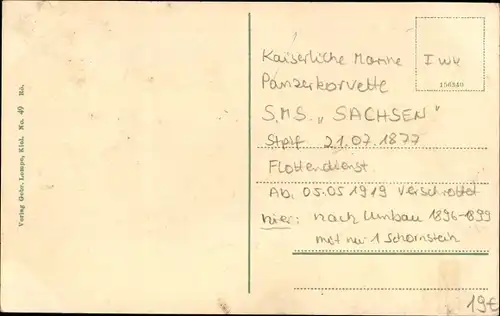 Verlag Gebr. Lempe, Kiel. No. 49 Kö.
Kaiserliche Marine I WK
Panzerkorvette
156340
S.M.S. „SACHSEN"
Stplf 21.07.1877
Flottendienst
Ab. 05.05 1919 verschrottet
hier: nach Umbau 1896-1899
mit nur 1 Schornstein
19€